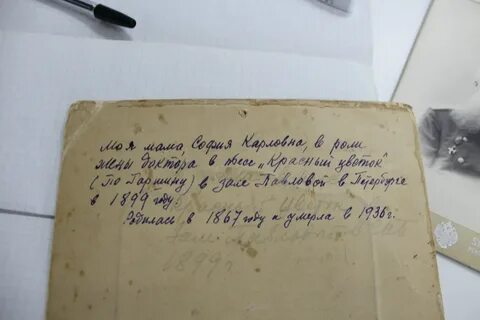 Моя мама, София Карловна, в роли
жены доктора в пьесе „Красный цветок"
(По Гаршину) в зале Павловой в Петербурге
в 1899 году.
Родилась в 1867 году и умерла в 1936 г.
Цветок
Зал Павловой
1899 г